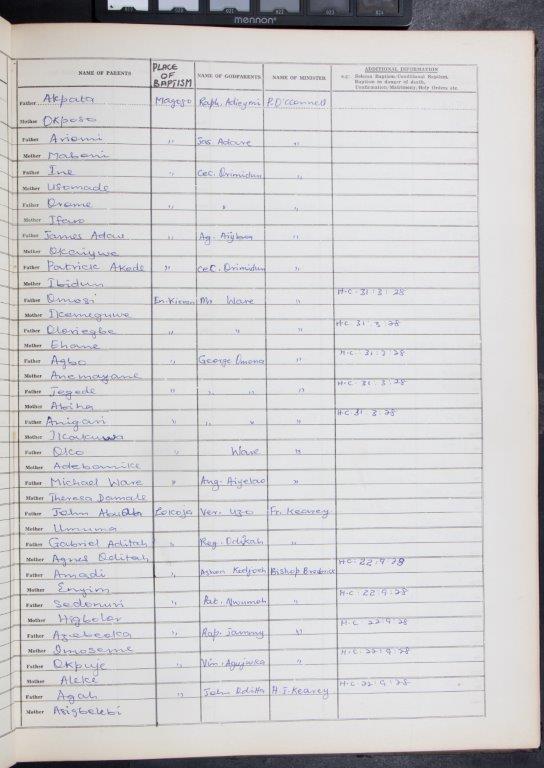 mennon
NAME OF PARENTS PLACE OF BAPTISM NAME OF GODPARENTS NAME OF MINISTER ADDITIONAL INFORMATION
e.g: Solemn Baptism/Conditional Baptism, Baptism in danger of death, Confirmation/Matrimony/Holy Orders etc.
Father Akpata Magogo Raph. Adieymi P. O'Connell
Mother Okposo
Father Ariomi " Jas Adare "
Mother Maboni
Father Ine " Cec. Orimidun "
Mother Usomade
Father Orame " " "
Mother Ifaro
Father James Adare " Ag. "
Mother Okaiywe
Father Patrick Akede " Cec. Orimidun "
Mother Ibidun
Father Omosi En. Kieran Mr Ware " H-C: 31:3:28
Mother Ikomeguwe
Father Oloriegbe " " " H-C 31:3:28
Mother Ehane
Father Agbo " George Omona " H-C: 31:3:28
Mother Anemayane
Father Jegede " " " " H-C: 31:3:28
Mother Abiha
Father Anigari " " " " H-C 31:3:28
Mother
Father Oko " Ware "
Mother Adebomike
Father Michael Ware " Aug. Aiyelao "
Mother Theresa Damale
Father John Lokoja Ver. Uzo Fr. Kearey
Mother Umuma
Father Gabriel Aditah " Reg. Odikah "
Mother Agnes Oditah
Father Amadi " Kodjoh Bishop Broderick H-C: 22:9:28
Mother Enyim
Father Sedonuri " Pat. Nwumeh " H-C: 22:9:28
Mother Higbolor
Father Azebeoka " Rap. Jammy " H-C: 22:9:28
Mother Imoseme
Father Okpuje " Vin. " H-C: 22:9:28
Mother Aleke
Father Agah " John Oditta H. J. Kearey H-C: 22:9:28
Mother Asigbelebi